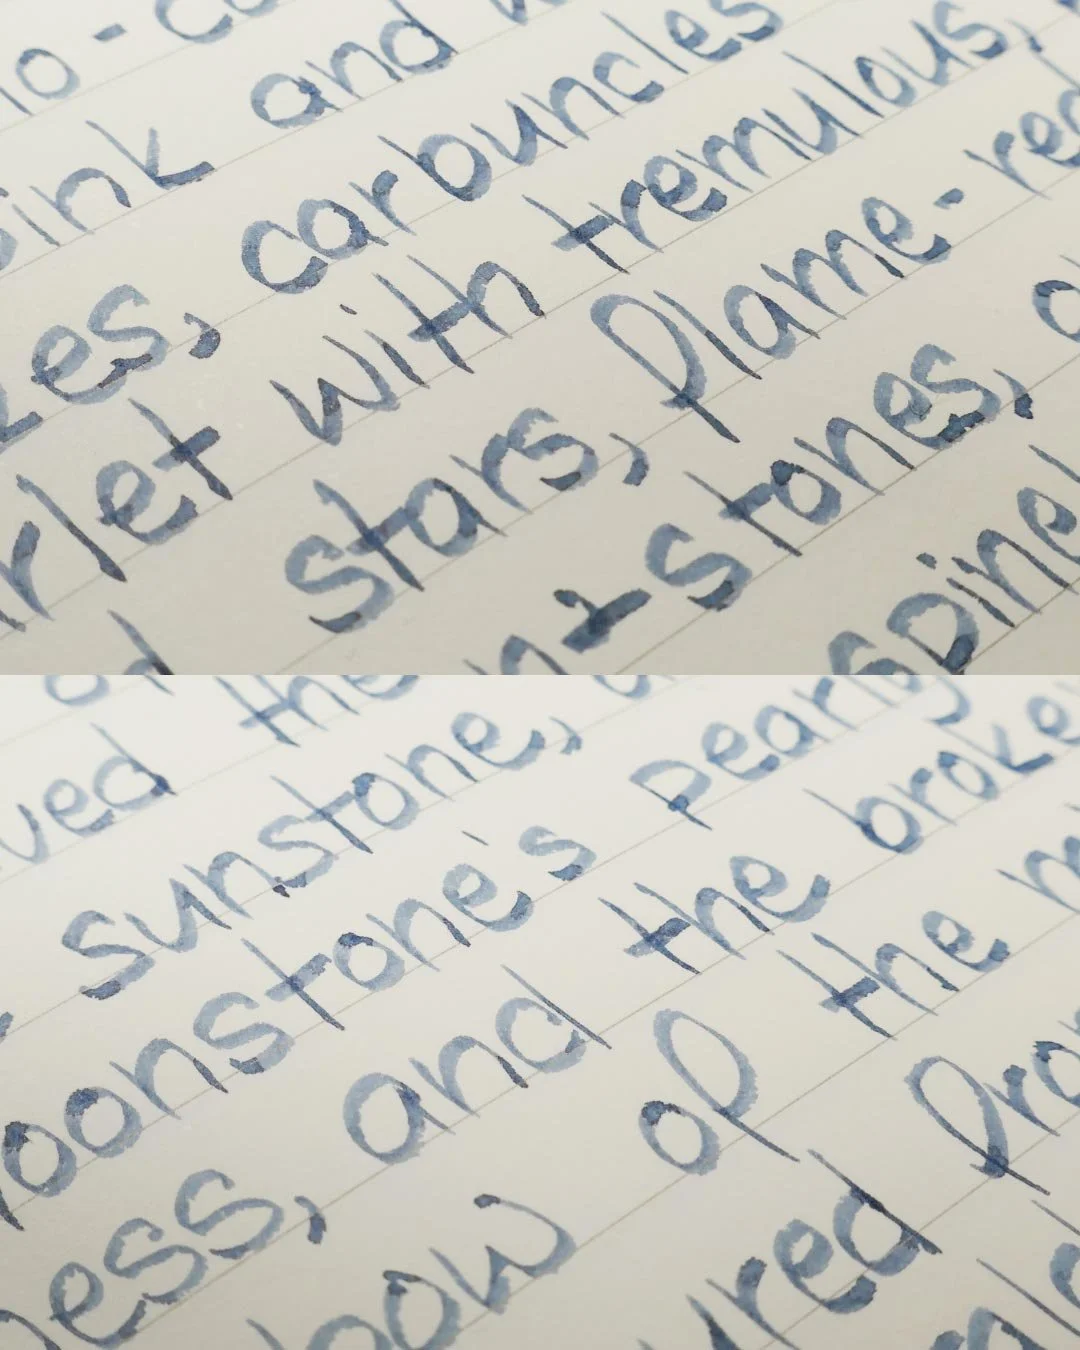 io-co
pink and w
zes, carbuncles
rlet with tremulous,
stars, flame-red
n-stones, o
spinel
ved the
sunstone, a
oonstone's pearly
ness, and the broke
bow of the m
ured fro